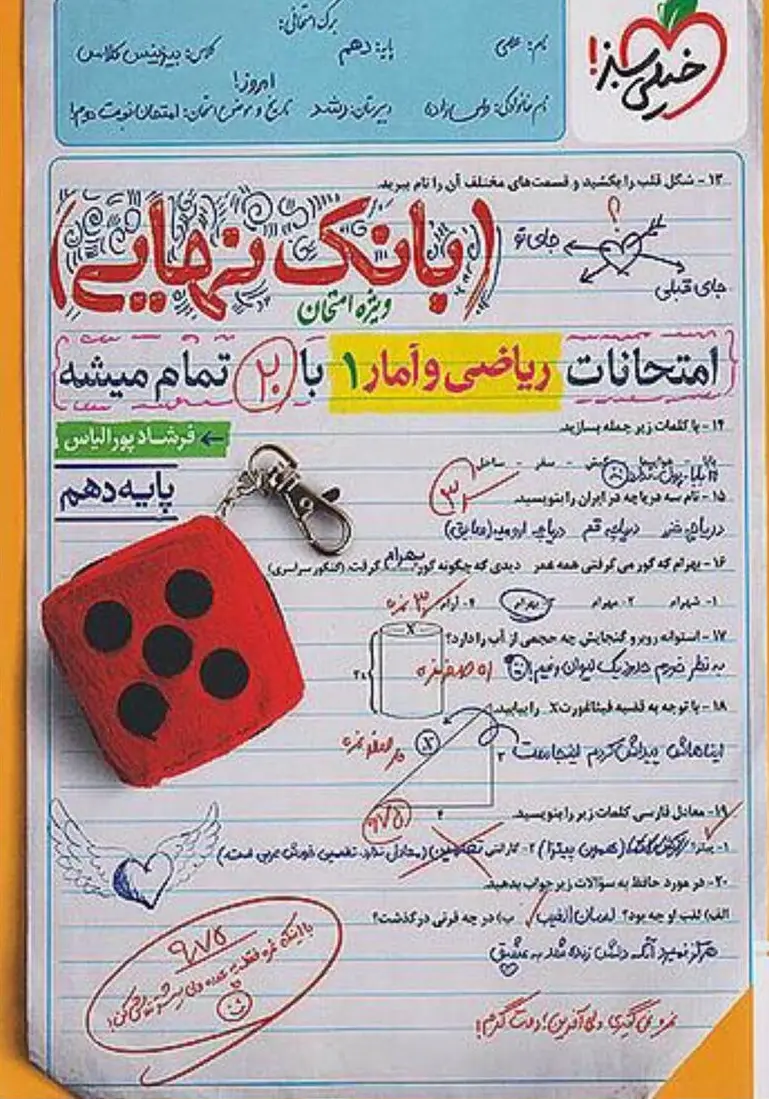 خیلی سبز!
برگ امتحانی:
نام: علی
پایه: دهم
کلاس: بیزینس کلاس
امروز!
نام خانوادگی:
دبیرستان: رشد
تاریخ و موضوع امتحان: امتحان نوبت دوم!
۱۳- شکل قلب را بکشید و قسمت‌های مختلف آن را نام ببرید.
؟
جای تو
جای قبلی
(بانک نهایی)
ویژه امتحان
امتحانات ریاضی و آمار ۱ با ۲۰ تمام میشه
۱۴- با کلمات زیر جمله بسازید.
فرشاد پورالیاس
پایه دهم
- سفر - ساحل
بابا پول ندارد
۱۵- نام سه دریاچه در ایران را بنویسید.
دریاچه خزر دریاچه قم دریاچه ارومیه (سابق)
۱۶- بهرام که گور می‌گرفتی همه عمر دیدی که چگونه گور بهرام گرفت. (کنکور سراسری)
۱- شهرام ۲- مهرام ۳- بهرام ۴- آرام
۱۷- استوانه روبرو گنجایش چه حجمی از آب را دارد؟
X
به نظر خودم حدود یک لیوان و نیم!
۱۸- با توجه به قضیه فیثاغورث X را بیابید.
ایناهاش پیداش کردم اینجاست
X
۳
۴
۱۹- معادل فارسی کلمات زیر را بنویسید.
۱- پیتزا: (همون پیتزا) ۲- گارانتی: تضمین (معادل نداره. تضمین خودش عربی است)
۲۰- در مورد حافظ به سؤالات زیر جواب بدهید.
الف) لقب او چه بود؟ لسان الغیب ب) در چه قرنی درگذشت؟
هرگز نمیرد آنکه دلش زنده شد به عشق
۹/۷۵
نمره نمی‌گیری ولی آفرین! دمت گرم!